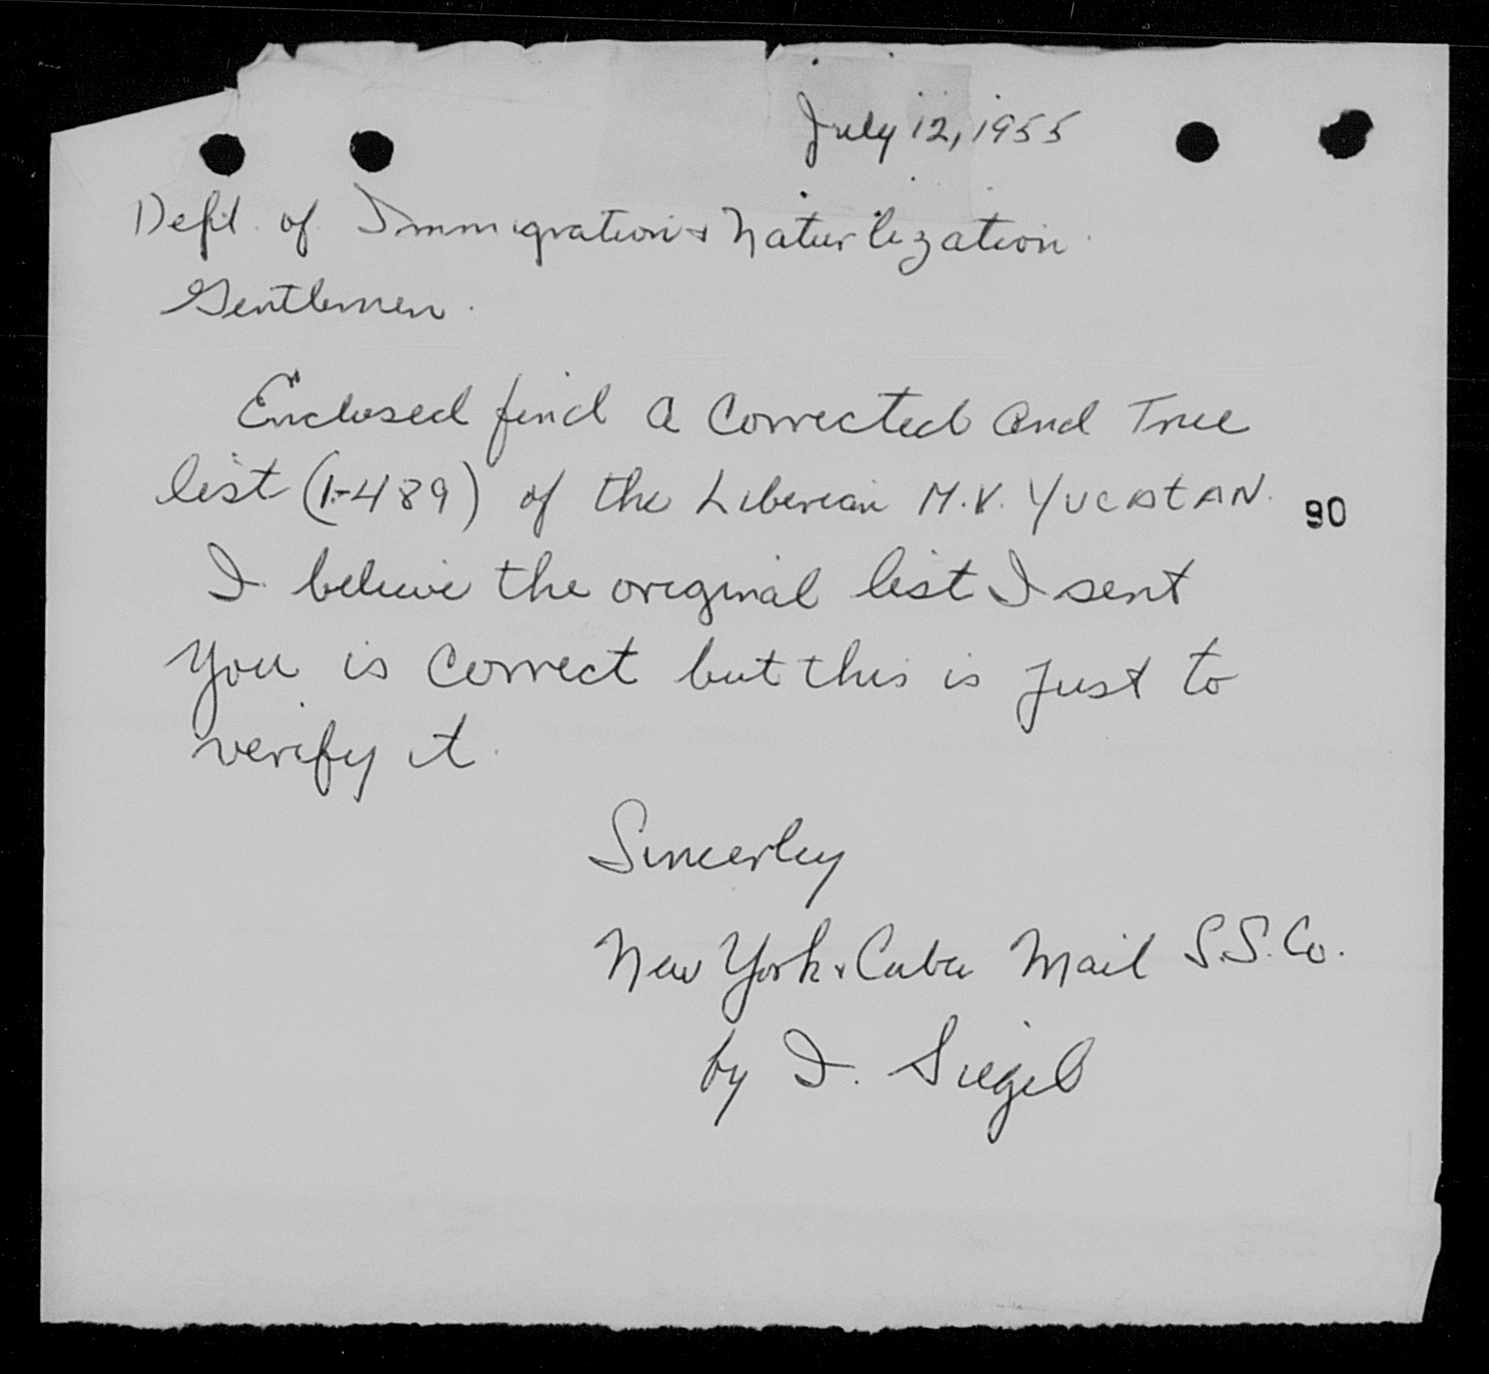 July 12, 1955
Dept. of Immigration & Naturlization
Gentlemen.
Enclosed find a Corrected and True
list (I-489) of the Liberian M.V. YUCATAN.
90
I believe the original list I sent
you is correct but this is just to
verify it.
Sincerley
New York & Cuba Mail S.S. Co.
by I. Siegel